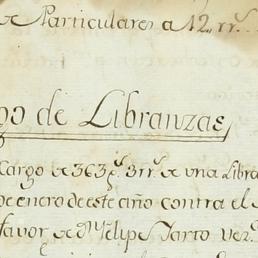 de Particulares a 12 rr.^s
go de Libranzas
Cargo de 363 p.^s 3 rr.^s de una Libra
de enero de este año contra el
favor de d.^n Felipe Jarto Ver.^o